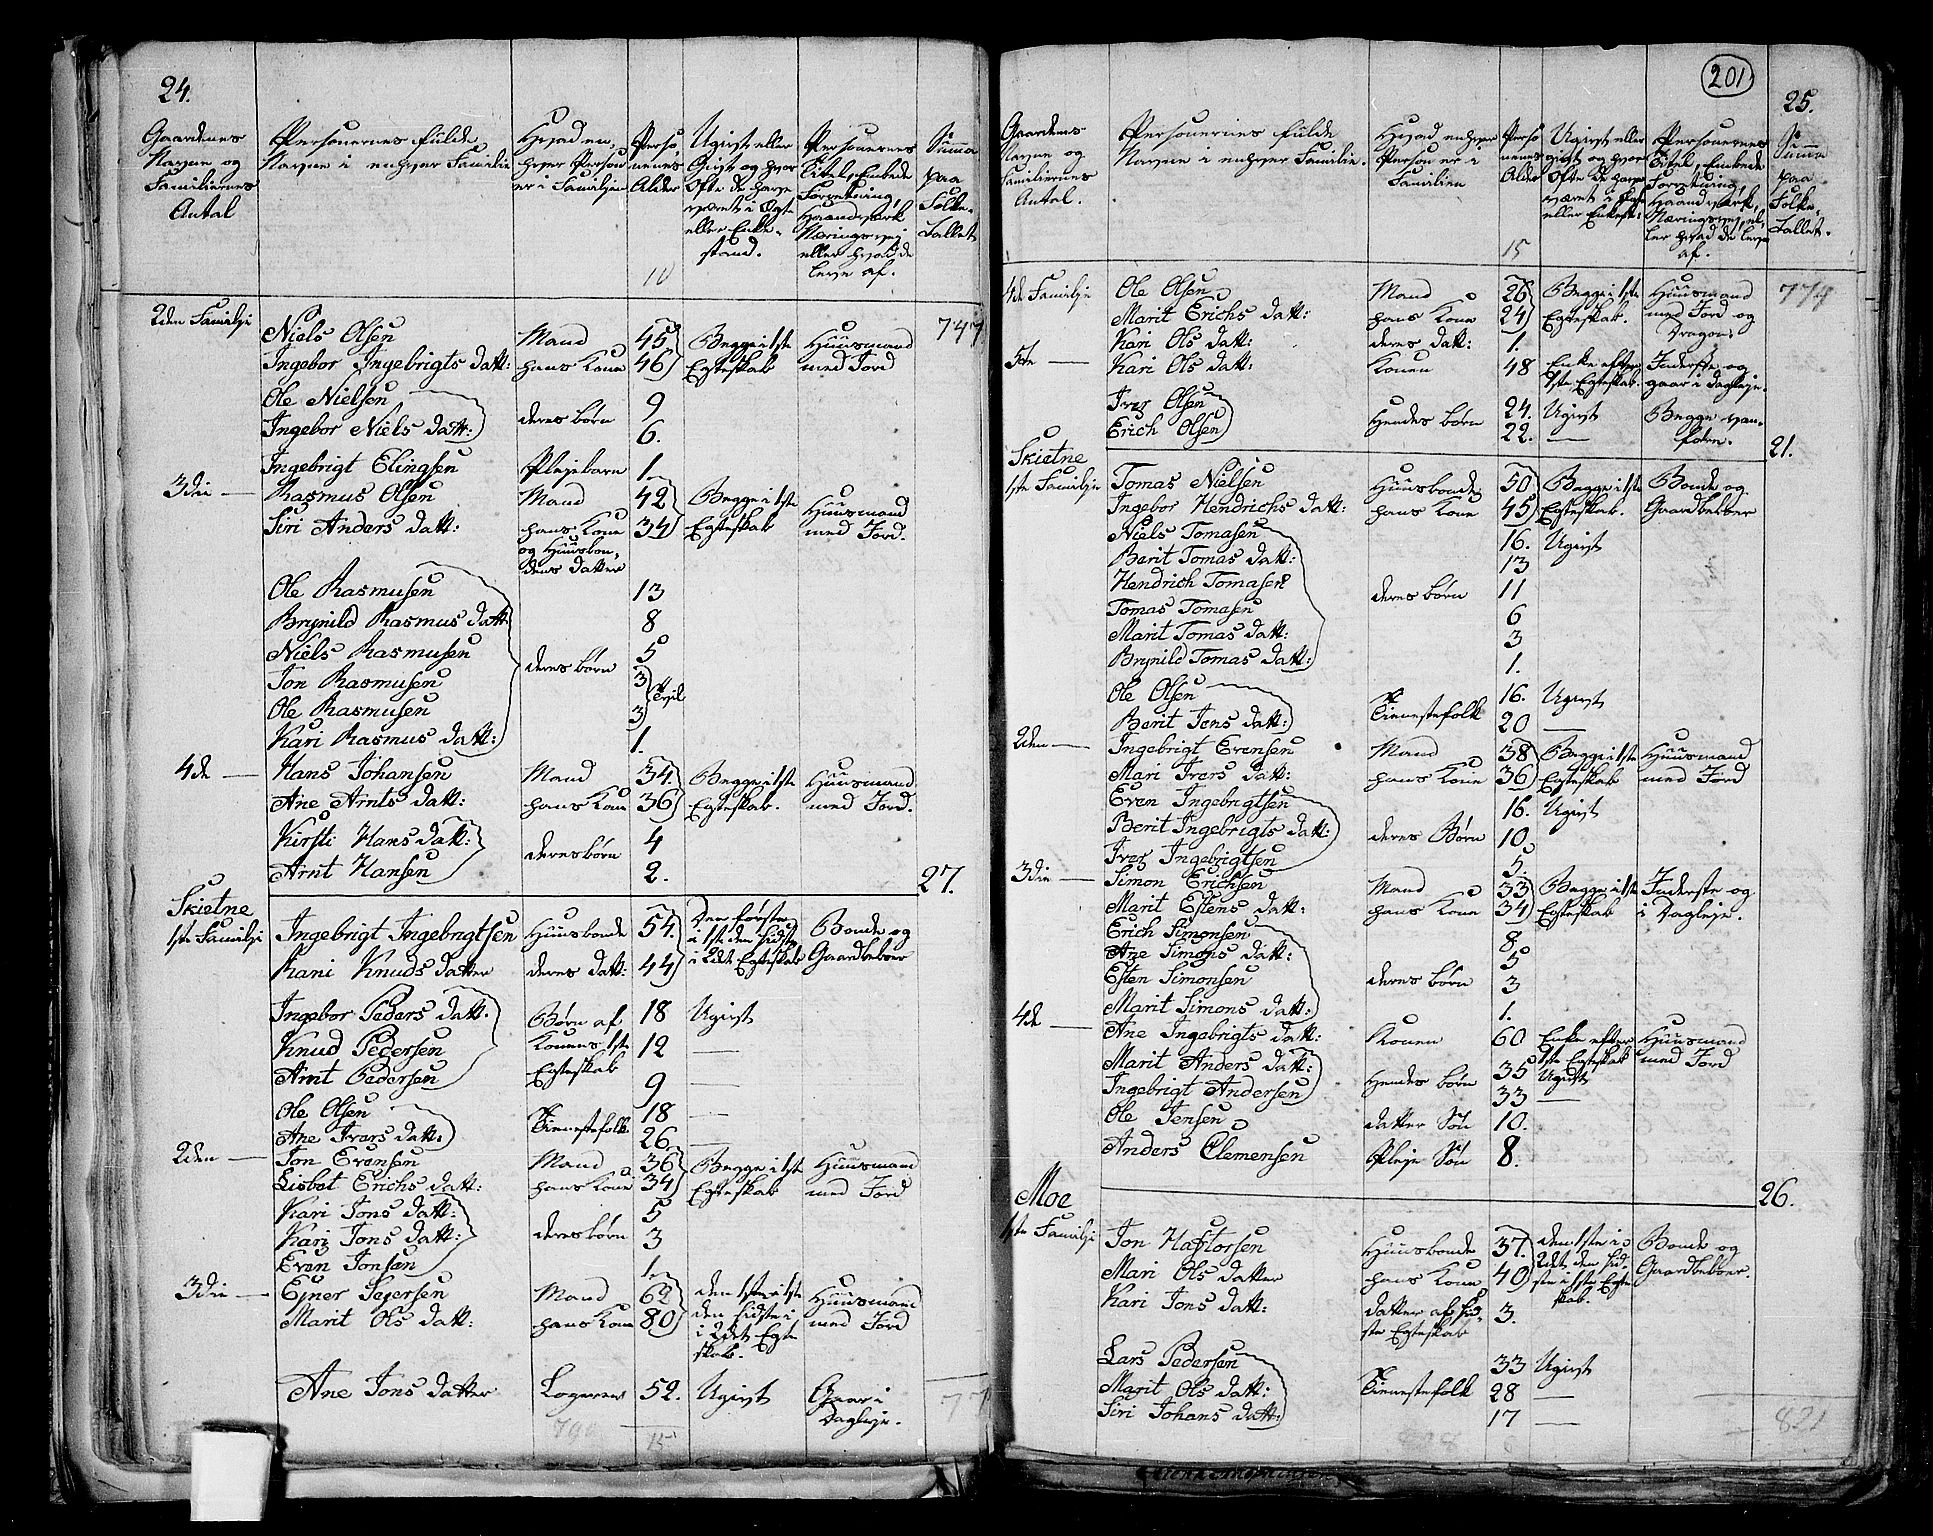 24.
Gaardenes Navne og Familiernes Antal | Personernes fulde Navne i enhver Familie | Hvad enhver Person er i Familjen | Personernes Alder | Ugivt eller Givt og hvor Ofte de have været i Egte eller Enkestand. | Personernes Titel, Embede Forretning, Haandverk Næringsvei eller hvad de leve af. | Summa paa Folketallet
10
2den Familje | Niels Olsen | Mand | 45 | Begge i 1ste | Huusmand | 747
Ingebor Ingebrigts datt: | hans Kone | 46 | Egteskab | med Jord
Ole Nielsen | deres børn | 9
Ingebor Niels datt: | 6.
Ingebrigt Elingsen | Plejebarn | 1.
3die — | Rasmus Olsen | Mand | 42 | Begge i 1ste | Huusmand
Siri Anders datt: | hans Kone og Huusbondens datter | 34 | Egteskab | med Jord.
Ole Rasmusen | 13
Brynild Rasmus datt: | 8
Niels Rasmusen | deres børn | 5
Jon Rasmusen | 3
Ole Rasmusen | 3
Kari Rasmus datt: | 1.
4de — | Hans Johansen | Mand | 34 | Begge i 1ste | Huusmand
Ane Arnts datt: | hans Kone | 36 | Egteskab. | med Jord.
Kirsti Hans datt: | deres børn | 4
Arnt Hansen | 2. | 27.
Skietne
1ste Familje | Ingebrigt Ingebrigtsen | Huusbonde | 54. | Den første i 1ste den sidste | Bonde og
Kani Knuds datter | deres datt: | 44 | i 2det Egteskab | Gaardbeboer
Ingebor Peders datt. | Børn af | 18 | Ugivt
Knud Pedersen | Konens 1ste | 12 | —
Arnt Pedersen | Egteskab | 9 | —
Ole Olsen | Tienestefolk | 18 | —
Ane Ivars datt: | 26. | —
2den — | Jon Evensen | Mand | 36 | Begge i 1ste | Huusmand
Lisbet Erichs datt: | hans Kone | 34 | Egteskab | med Jord
Kari Jons datt: | 5
Kari Jons datt: | deres børn | 3
Even Jonsen | 1.
3die — | Ejner Sejersen | Mand | 62 | den 1ste i 1ste | Huusmand
Marit Ols datt: | hans Kone | 80 | den sidste i i 2det Egteskab. | med Jord
Ane Jons datter | Logerer | 52. | Ugivt | Gaar i Dagleje. | 77
790 | 15
201
25.
Gaardens Navne og Familiernes Antal. | Personernes fulde Navne i enhver Familie. | Hvad enhver Person er i Familien | Personenes Alder | Ugivt eller givt og hvor Ofte de have været i Egte eller Enkest: | Personernes Titel, Embede Forretning, Haandverk, Næringsvej, eller hvad de leve af. | Summa paa Folketallet.
15
4de Familje | Ole Olsen | Mand | 26 | Begge i 1ste | Huusmand | 774
Marit Erichs datt: | hans Kone | 24 | Egteskab. | med Jord og
Kari Ols datt: | deres datt: | 1. | Dragon.
5te — | Kari Ols datt: | Konen | 48 | Enke efter 1ste Egteskab. | Inderste og gaar i Dagleje.
Iver Olsen | Hendes børn | 24. | Ugivt | Begge
Erich Olsen | 22. | — | 21.
Skietne
1ste Familje | Tomas Nielsen | Huusbonde | 50 | Begge i 1ste | Bonde og
Ingebor Hendrichs datt: | hans Kone | 45 | Egteskab. | Gaardbeboer
Niels Tomasen | 16. | Ugivt
Berit Tomas datt: | 13
Hendrich Tomasen | deres børn | 11
Tomas Tomasen | 6
Marit Tomas datt: | 3
Brynild Tomas datt: | 1.
Ole Olsen | Tienestefolk | 16. | Ugivt
Berit Jons datt: | 20 | —
2den — | Ingebrigt Evensen | Mand | 38 | Begge i 1ste | Huusmand
Mari Ivers datt: | hans Kone | 36 | Egteskab | med Jord
Even Ingebrigtsen | 16. | Ugivt
Berit Ingebrigts datt: | deres Børn | 10.
Iver Ingebrigtsen | 5.
3die — | Simon Erichsen | Mand | 33 | Begge i 1ste | Inderste og
Marit Estens datt: | hans Kone | 34 | Egteskab | i Dagleje.
Erich Simonsen | 8.
Ane Simons datt: | 5
Esten Simonsen | deres børn | 3
Marit Simons datt: | 1.
4de — | Ane Ingebrigts datt: | Konen | 60 | Enke efter 1ste Egteskab | Huusmand
Marit Anders datt: | Hendes børn | 35 | Ugivt | med Jord
Ingebrigt Andersen | 33 | —
Ole Jensen | datter Søn | 10.
Anders Clemensen | Pleje Søn | 8.
26.
Moe
1ste Familje | Jon Haftorsen | Huusbonde | 37. | den 1ste i 2det den sidste i 1ste Egteskab. | Bonde og
Mari Ols datter | hans Kone | 40 | Gaardbeboer.
Kari Jons datt: | datter af sidste Egteskab | 3.
Lars Pedersen | 33 | Ugivt
Marit Ols datt: | Tienestefolk | 28 | —
Siri Johans datt: | 17 | — | 821